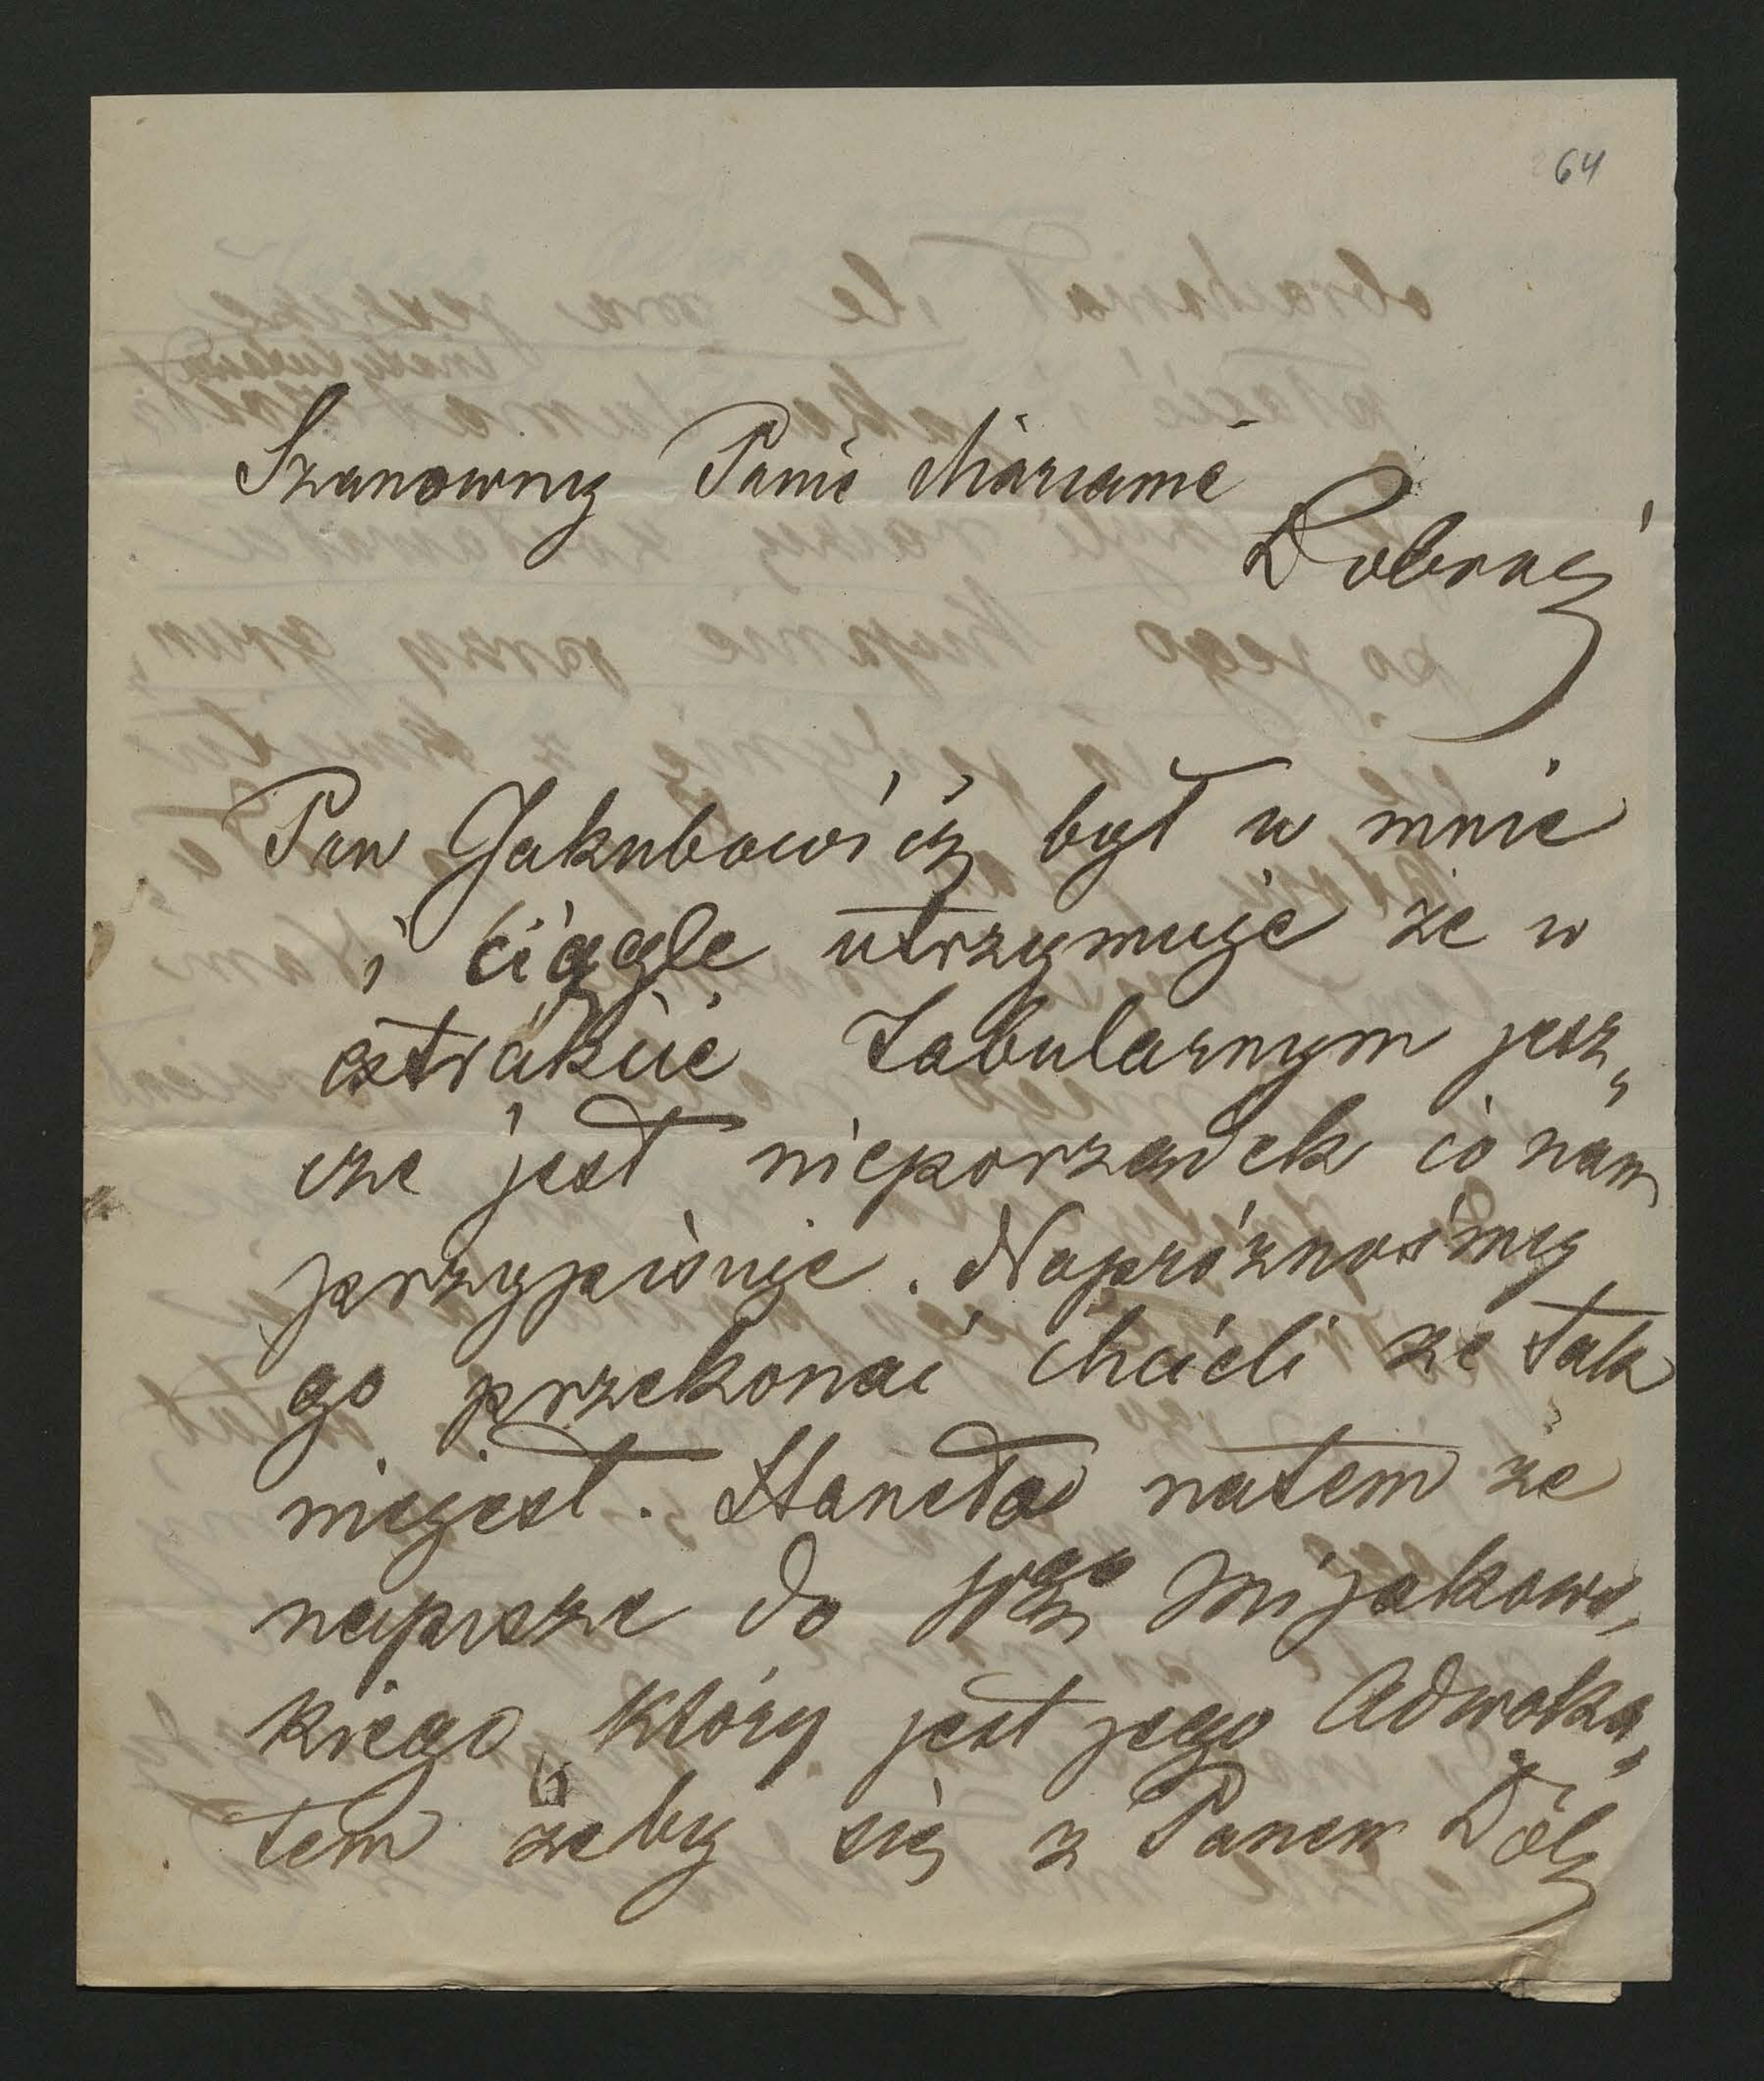 64
Szanowny Panie Maryanie
Dobrzej
Pan Jakubowicz był u mnie
i ciągle utrzymuje że w
extrakcie Tabularnym jesz„
cze jest nieporządek co nam
przypisuje. Napróżnośmy
go przekonać chcieli że tak
niejest. Staneło natem że
napisze do Mijakows„
kiego który jest jego Adwoka„
tem żeby się z Panem Dob